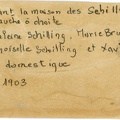 ant la maison des Schilli
auche à droite
Schilling, Marie Bru
Schilling et Xav
domestique
1903